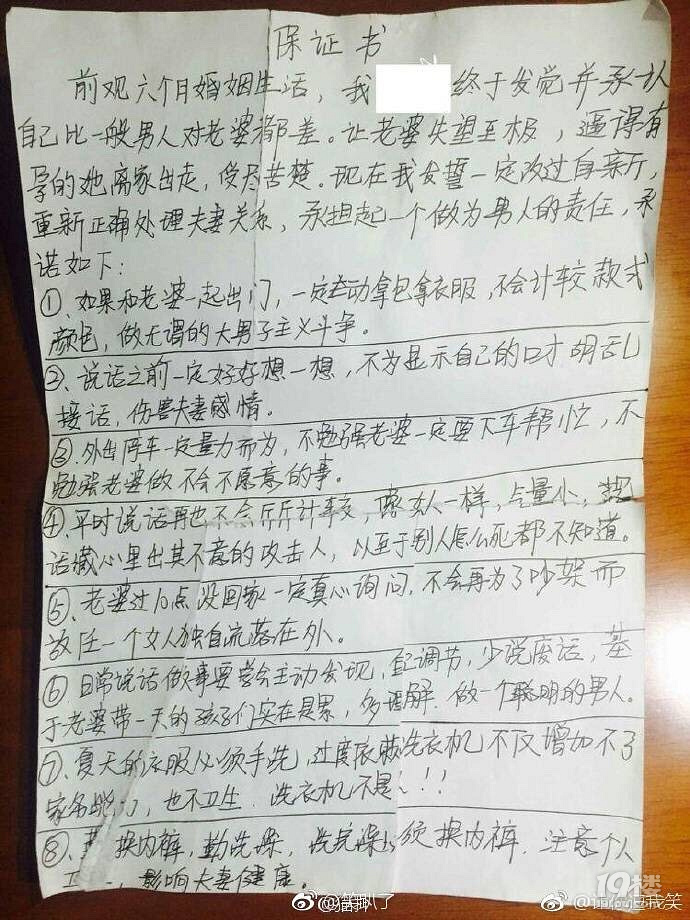 保证书
前观六个月婚姻生活，我 终于发觉并承认
自己比一般男人对老婆都差。让老婆失望至极，逼得有
孕的她离家出走，受尽苦楚。现在我发誓一定改过自亲斤，
重新正确处理夫妻关系，承担起一个做为男人的责任，承
诺如下：
①、如果和老婆一起出门，一定主动拿包拿衣服，不会计较款式
颜色，做无谓的大男子主义斗争。
②、说话之前一定好好想一想，不为显示自己的口才胡乱
接话，伤害夫妻感情。
③、外出停车一定量力而为，不勉强老婆一定要下车帮忙，不
勉强老婆做不会不愿意的事。
④、平时说话再也不会斤斤计较，像女人一样，气量小，
话藏心里出其不意的攻击人，以至于别人怎么死都不知道。
⑤、老婆过10点没回家一定真心询问，不会再为了吵架而
放任一个女人独自流落在外。
⑥、日常说话做事要学会主动发现，调节，少说废话，基
于老婆带一天的孩子们实在是累，多理解．做一个聪明的男人。
⑦、夏天的衣服必须手洗，过度依赖洗衣机不仅增加不了
家务能力，也不卫生．洗衣机不是 ！！
⑧、 换内裤，勤洗澡，洗完澡必须换内裤．注意个人
影响夫妻健康。
19楼